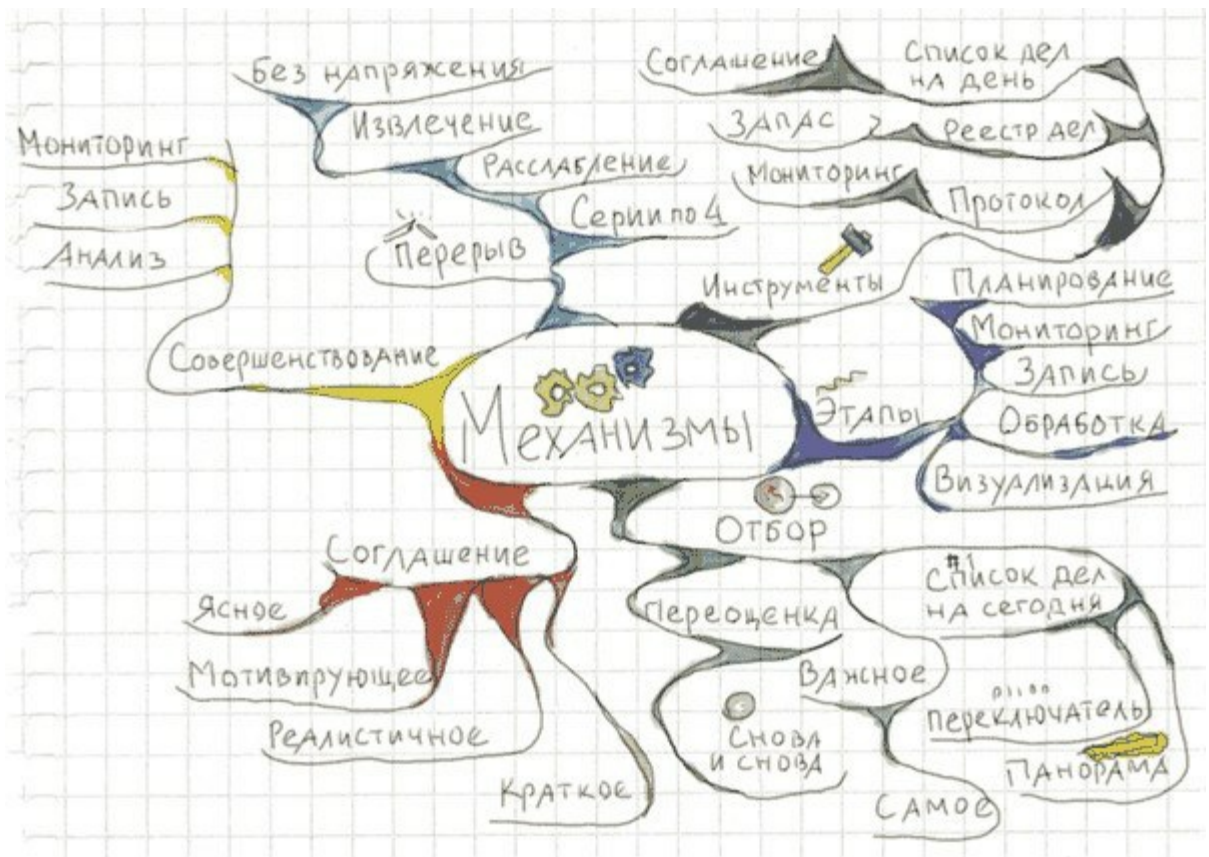 Без напряжения
Извлечение
Расслабление
Серии по 4
Перерыв
Мониторинг
Запись
Анализ
Совершенствование
Соглашение
Список дел
на день
Запас
Реестр дел
Мониторинг
Протокол
Инструменты
Планирование
Мониторинг
Запись
Обработка
Визуализация
Этапы
Механизмы
Отбор
Соглашение
Ясное
Мотивирующее
Реалистичное
Краткое
Переоценка
Снова
и снова
Важное
Самое
Список дел
на сегодня
Переключатель
Панорама